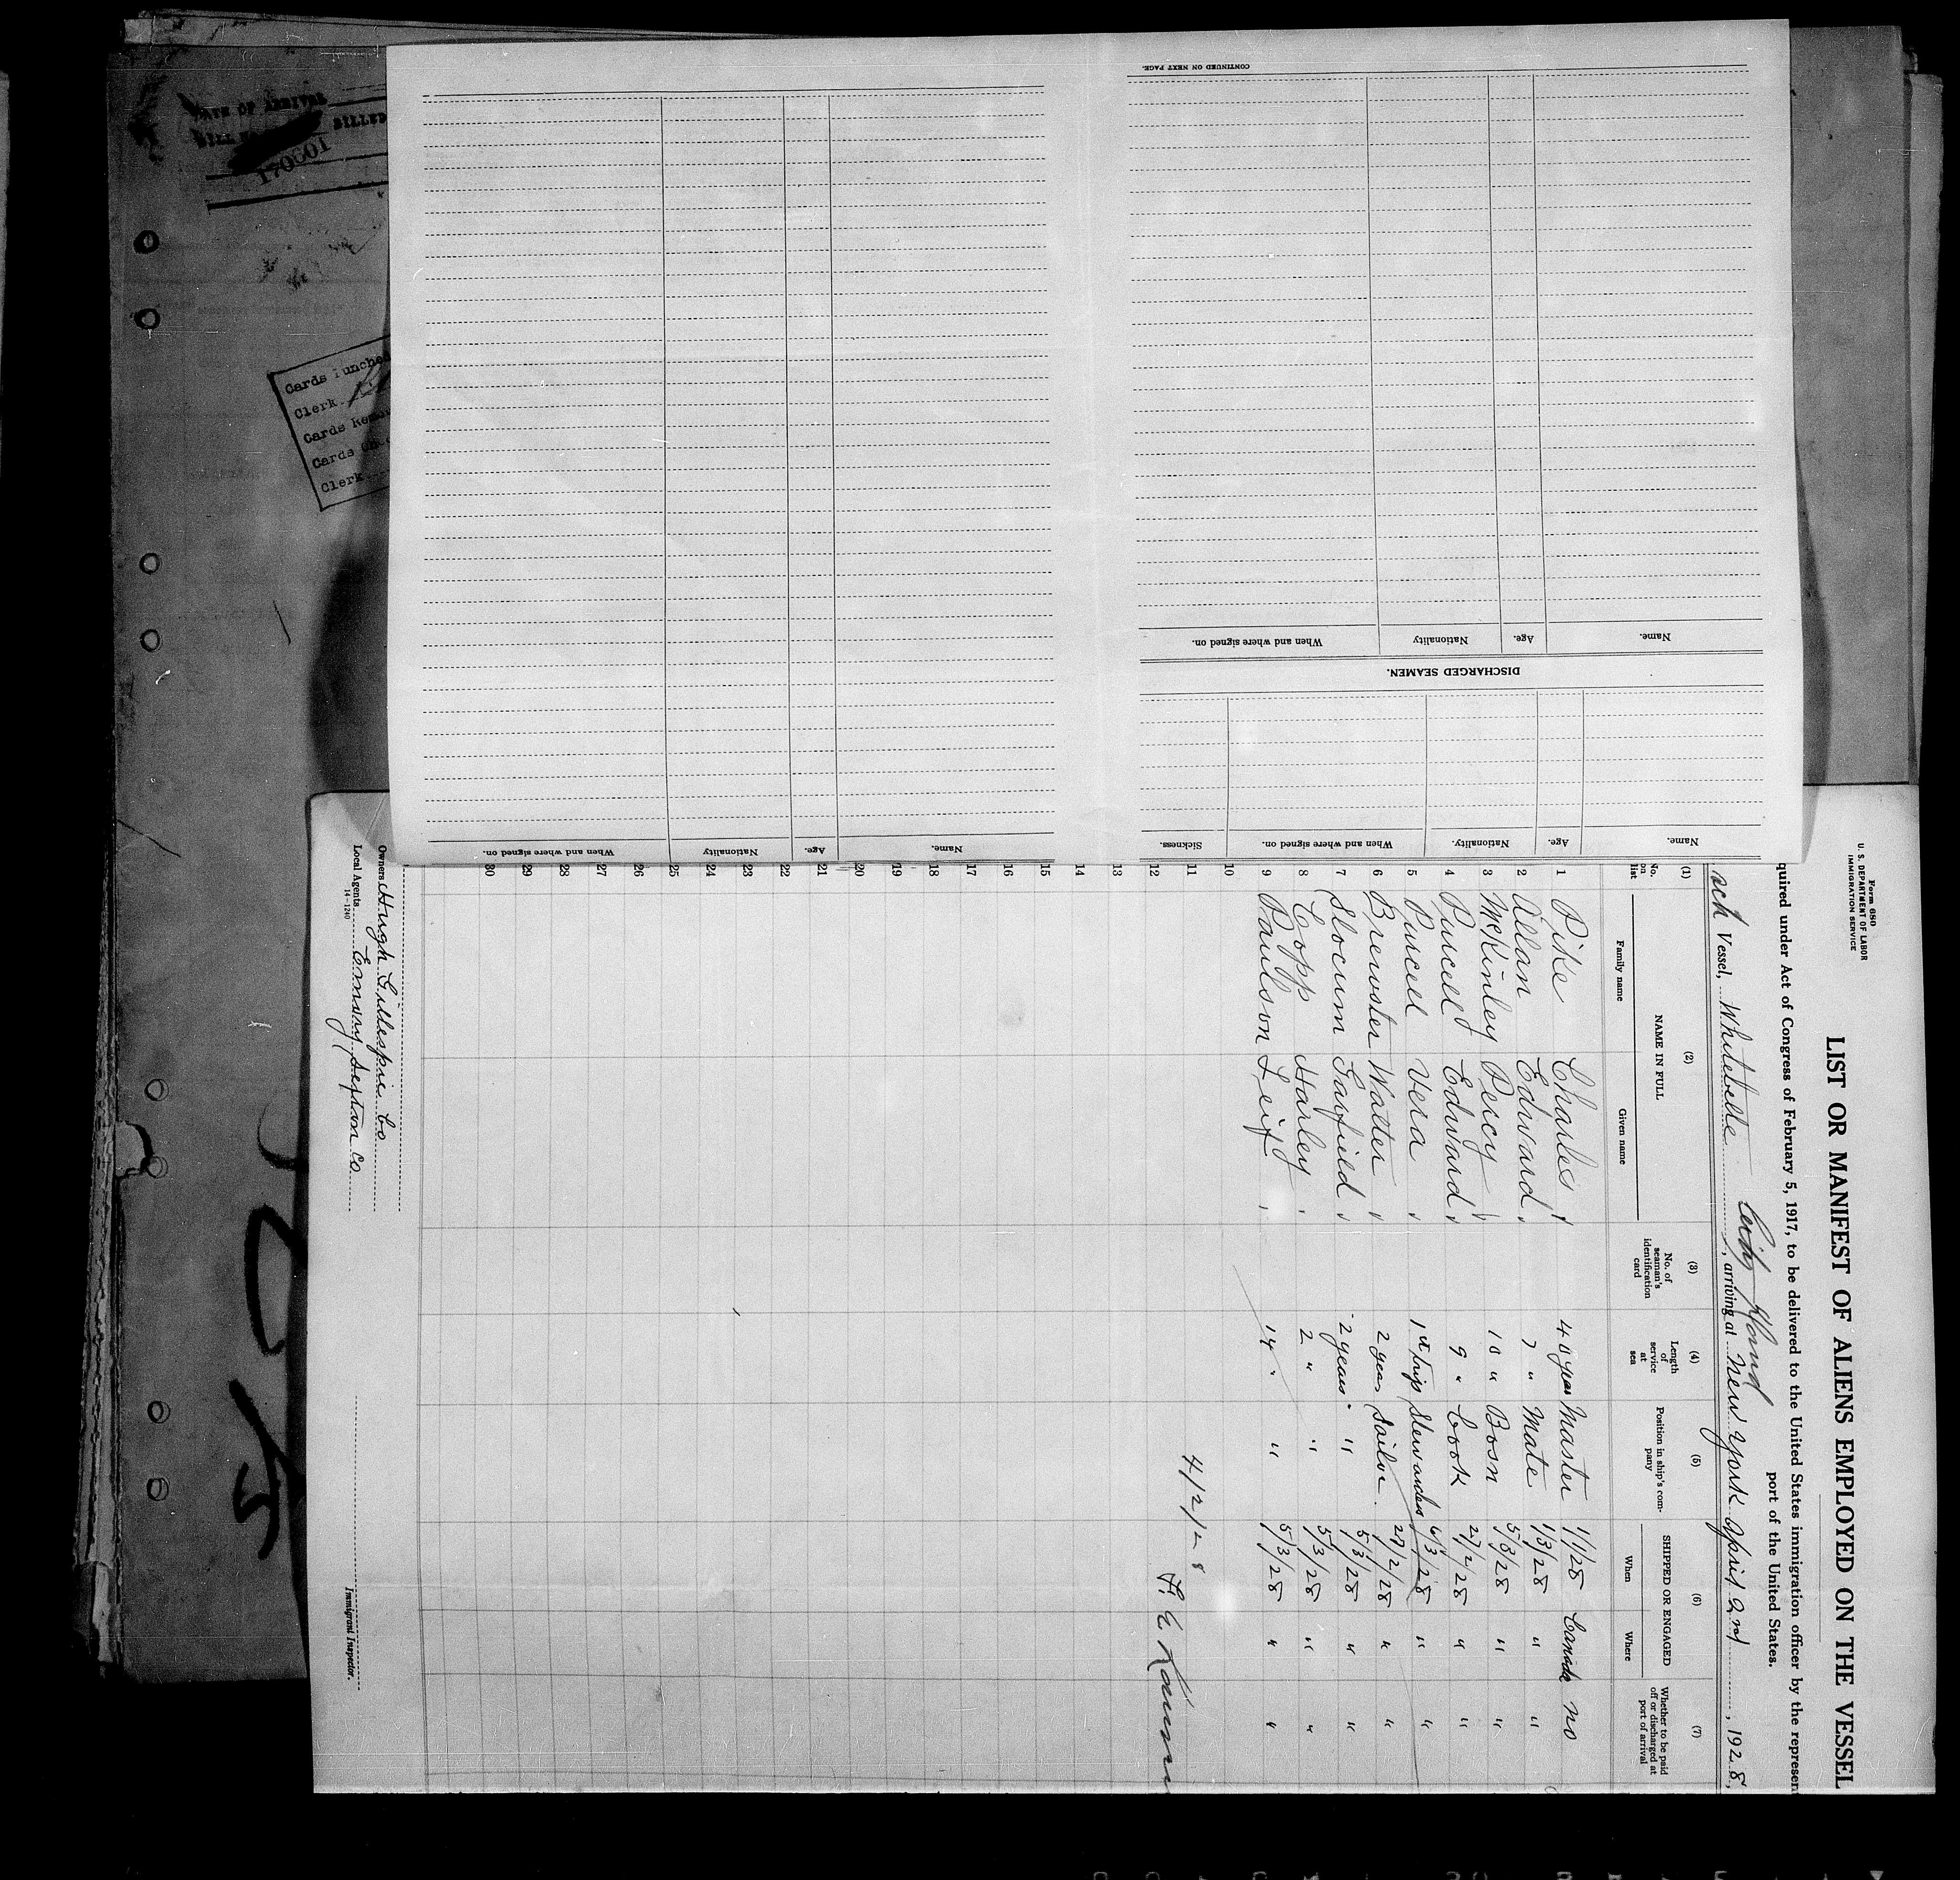 Form 680
U. S. DEPARTMENT OF LABOR
IMMIGRATION SERVICE
LIST OR MANIFEST OF ALIENS EMPLOYED ON THE VESSEL
quired under Act of Congress of February 5, 1917, to be delivered to the United States immigration officer by the represen
port of the United States.
City Island
sch Vessel, Whitebelle, arriving at New York April 2nd, 1928,
(1) (2) (3) (4) (5) (6) (7)
No. on list NAME IN FULL Family name Given name No. of seaman's identification card Length of service at sea Position in ship's company SHIPPED OR ENGAGED When Where Whether to be paid off or discharged at port of arrival
1 Pike Charles 40 year Master 1/1/28 Canada no
2 Allan Edward 7 " Mate 1/3/28 " "
3 McKinley Percy 10 " Bosn 5/3/28 " "
4 Purcell Edward 9 " Cook 27/2/28 " "
5 Purcell Vera 1st trip Stewardess 6/3/28 " "
6 Brewster Walter 2 year Sailor 27/2/28 " "
7 Slocum Garfield 2 years " 5/3/28 " "
8 Copp Harley 2 " " 5/3/28 " "
9 Paulson Leif 14 " " 5/3/28 " "
10
11
4/2/28
12
13
14
15
16
17
18
19
20
21
22
23
24
25
26
27
28
29
30
Owners Hugh Gillespie Co
Local Agents
14-1240
Immigrant Inspector.
Name. Age. Nationality. When and where signed on. Sickness.
DISCHARGED SEAMEN.
Name. Age. Nationality When and where signed on.
CONTINUED ON NEXT PAGE.
Name. Age. Nationality When and where signed on.
DATE OF ARRIVAL
BILLED
Cards Punched
Clerk
Cards
Cards
Clerk